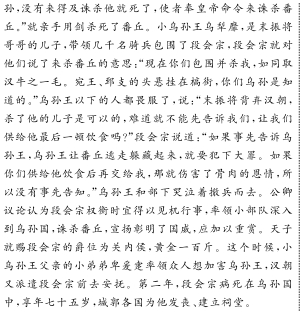 孙,没有来得及诛杀他就死了,使者奉皇帝命令来诛杀番
丘。”就亲手用剑杀死了番丘。小乌孙王乌犁靡,是末振将
哥哥的儿子,带领几千名骑兵包围了段会宗,段会宗就对
他们说了来杀番丘的意思:“现在你们包围并杀我,如同取
汉牛之一毛。宛王、郅支的头悬挂在槁街,你们乌孙是知
道的。”乌孙王以下的人都畏服了,说:“末振将背弃汉朝,
杀了他的儿子是可以的,难道就不能先告诉我们,让我们
供给他最后一顿饮食吗?”段会宗说道:“如果事先告诉乌
孙王,乌孙王让番丘逃走躲藏起来,就要犯下大罪。如果
你们供给他饮食后再交给我,那就伤害了骨肉的恩情,所
以没有事先告知。”乌孙王和部下哭泣着撤兵而去。公卿
议论认为段会宗权衡时宜得以见机行事,率领小部队深入
到乌孙国,诛杀番丘,宣扬彰明了国威,应加以重赏。天子
就赐段会宗的爵位为关内侯,黄金一百斤。这个时候,小
乌孙王父亲的小弟弟卑爰疐率领众人想加害乌孙王,汉朝
又派遣段会宗前去安抚。第二年,段会宗病死在乌孙国
中,享年七十五岁,城郭各国为他发丧、建立祠堂。